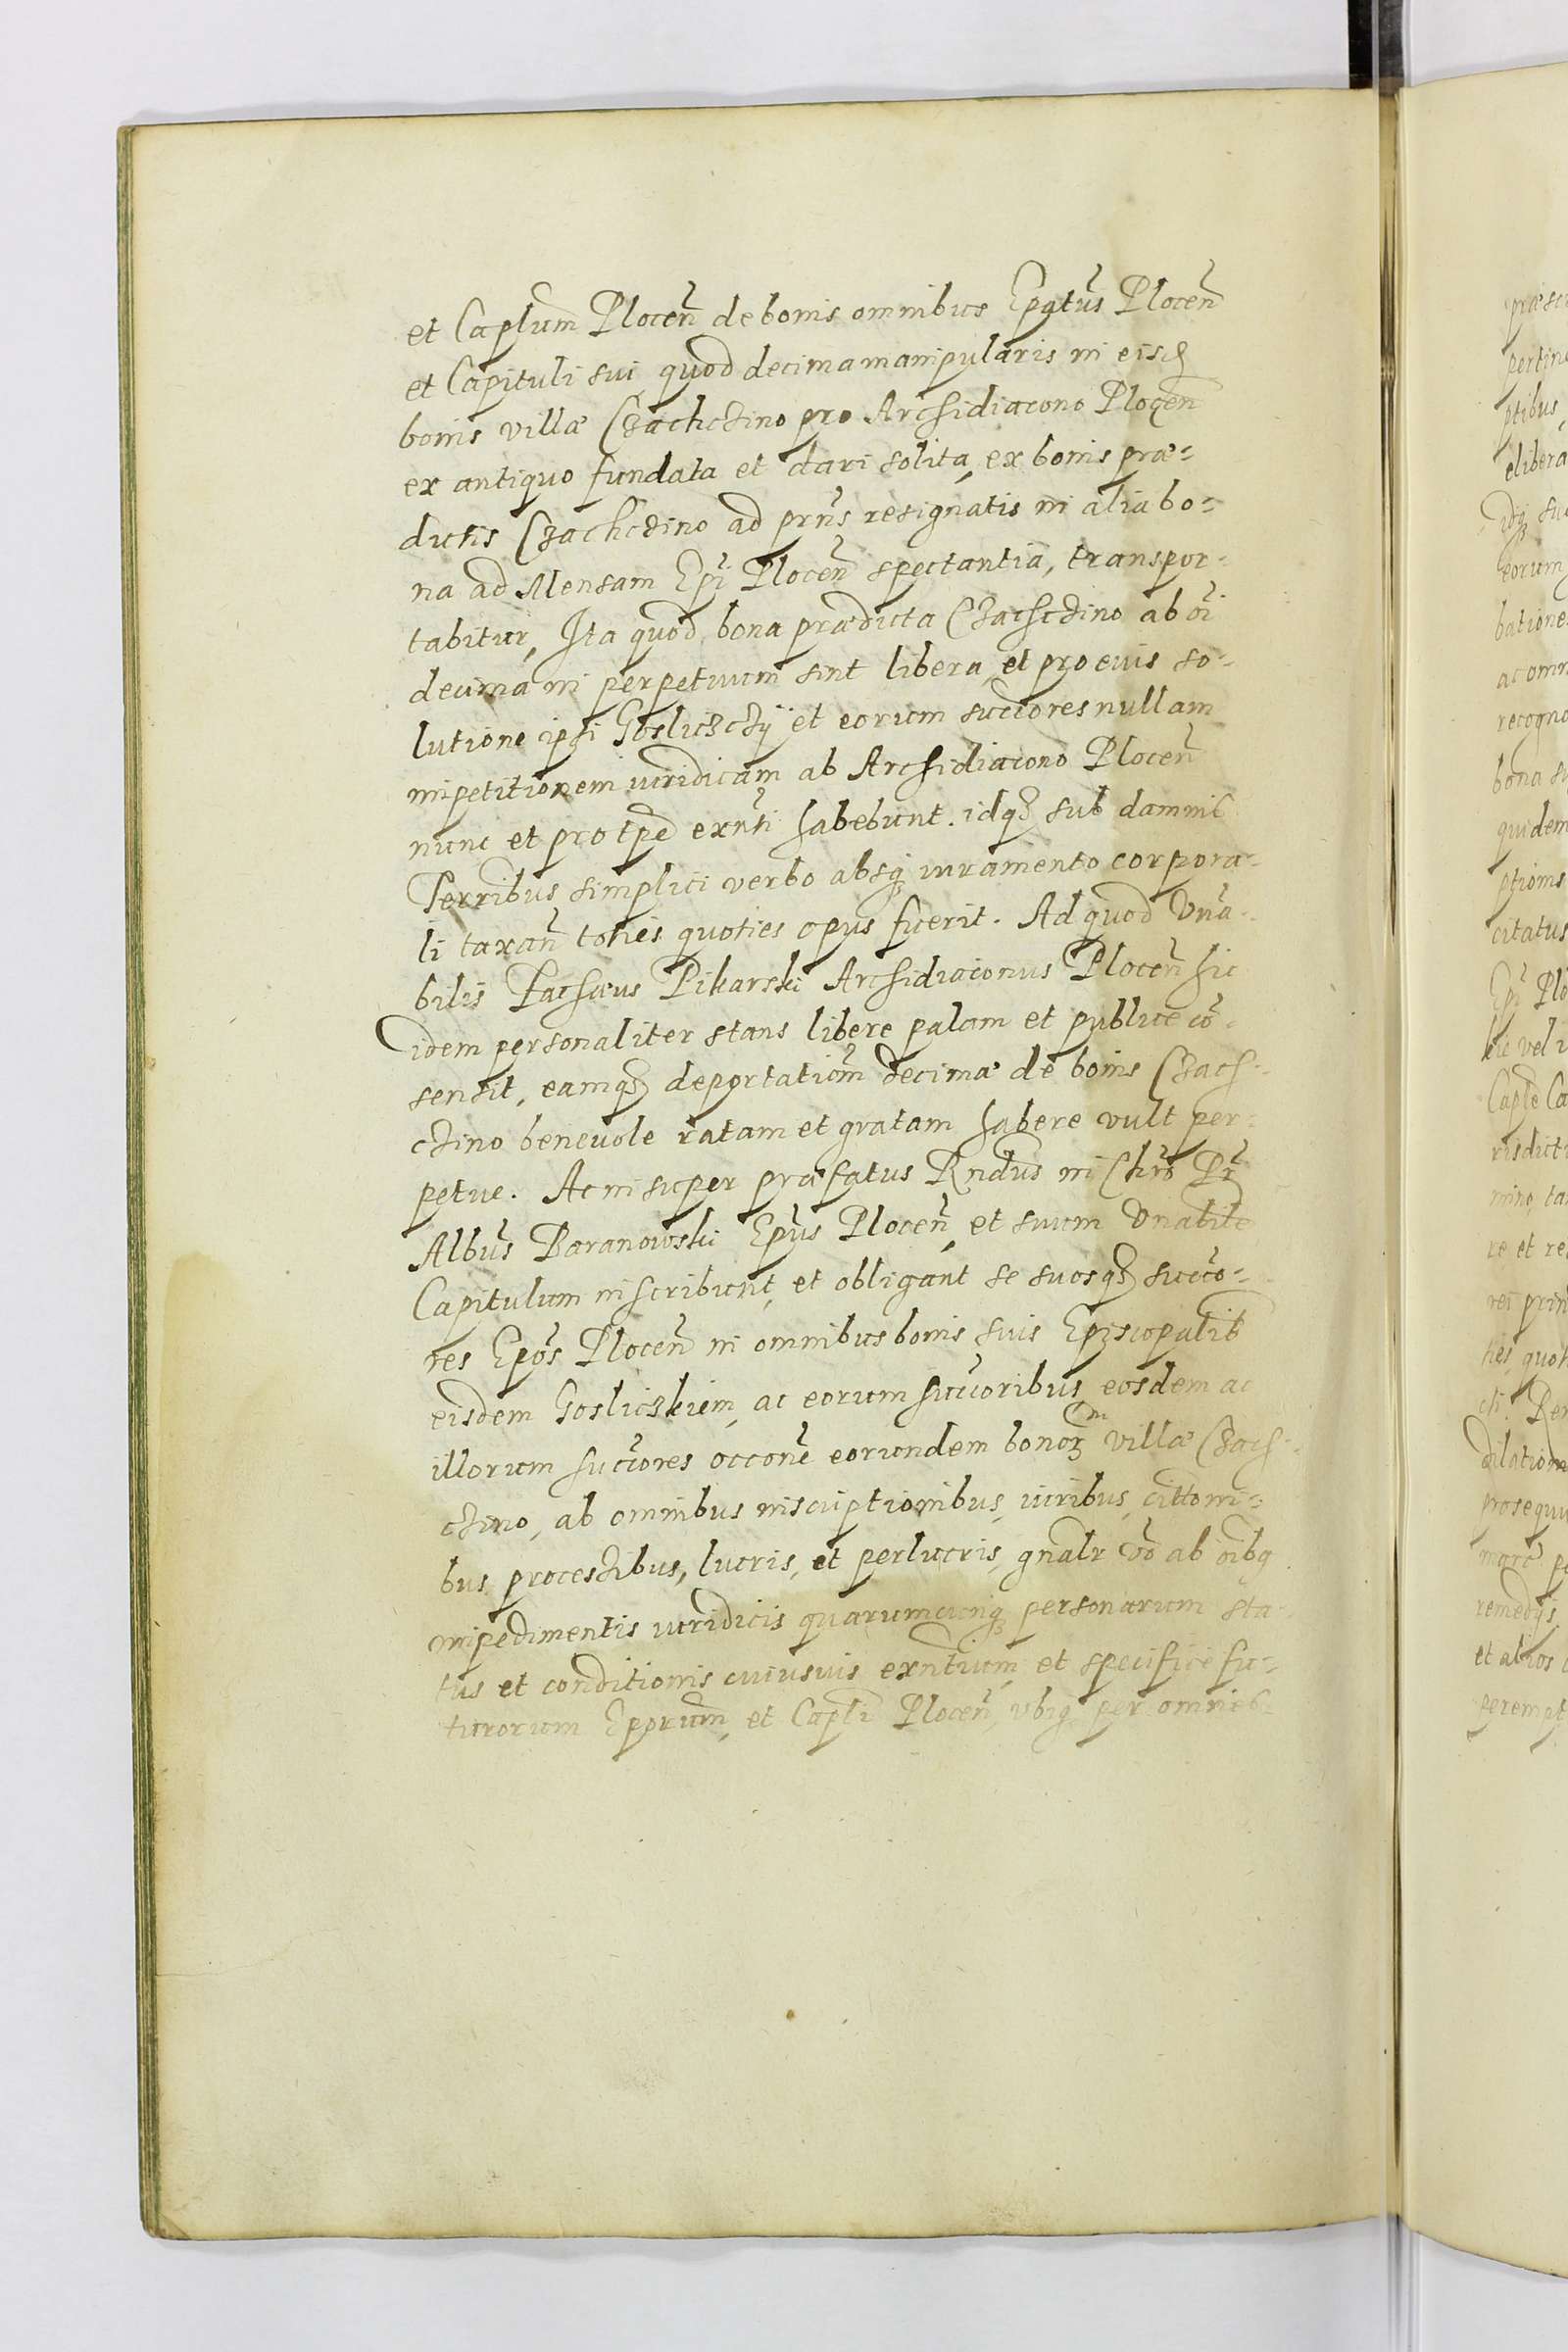 et Caplum Plocen̄ de bonis omnibus Epatus Plocen̄
et Capituli sui quod decima manipularis in eisd
bonis villæ Czachczino pro Archidiacono Plocen̄
ex antiquo fundata et dari solita, ex bonis præ-
dictis Czachczino ad prn̄s resignatis in alia bo-
na ad Mensam Epi Plocen̄ spectantia, transpor-
tabitur, Ita quod bona prædicta Czachczino ab oi
decima in perpetuum sint libera, et pro euis so-
lutione ipsi Gosliczczÿ et eorum succores nullam
inpetitionem iuridicam ab Archidiacono Plocen̄
nunc et pro tpe exnti habebunt. idq3 sub damnis
Terribus simplici verbo absq3 iuramento corpora-
li taxan̄ toties quoties opus fuerit. Ad quod Vn̄a-
bilis Pikarski Archidiaconus Plocen̄ hic
idem personaliter stans libere palam et publice cō-
sensit, eamq3 deportatiom decimæ de bonis Czach-
czino beneuole ratam et gratam habere vult per-
petue. Ac insuper præfatus Rndus in Chro Pr
Albus Baranowski Epus Plocen̄, et suum Vnabile
Capitulum inscribunt, et obligant se suosq3 succo-
res Epos Plocen̄ in omnibus bonis suis Episcopalib
eisdem Gosliczkiem, ac eorum succoribus, eosdem ac
illorum succores occone eorundem bonor3 villæ Czach-
czino, ab omnibus inscriptionibus, iuribus, cittoni-
bus, processibus, lucris, et perlucris, gnalr vo ab oibq
inpedimentis iuridicis quarumcunq3 personarum sta-
tus et conditionis cuiusuis exntium, et specifice fu-
turorum Epprum, et Capli Plocen̄, vbiq per omnes
præscr
pertine
ptibus,
elibera
idq3 suc
eorum
batione
ac omn
recogno
bona su
quidem
ptionis
citatus
Epi Plo
vel i
Caple Ca
risdicti
mino, ta
re et re
res prin
ties, quot
dilatione
prosequu
marc pe
remedÿs
et alios
perempt